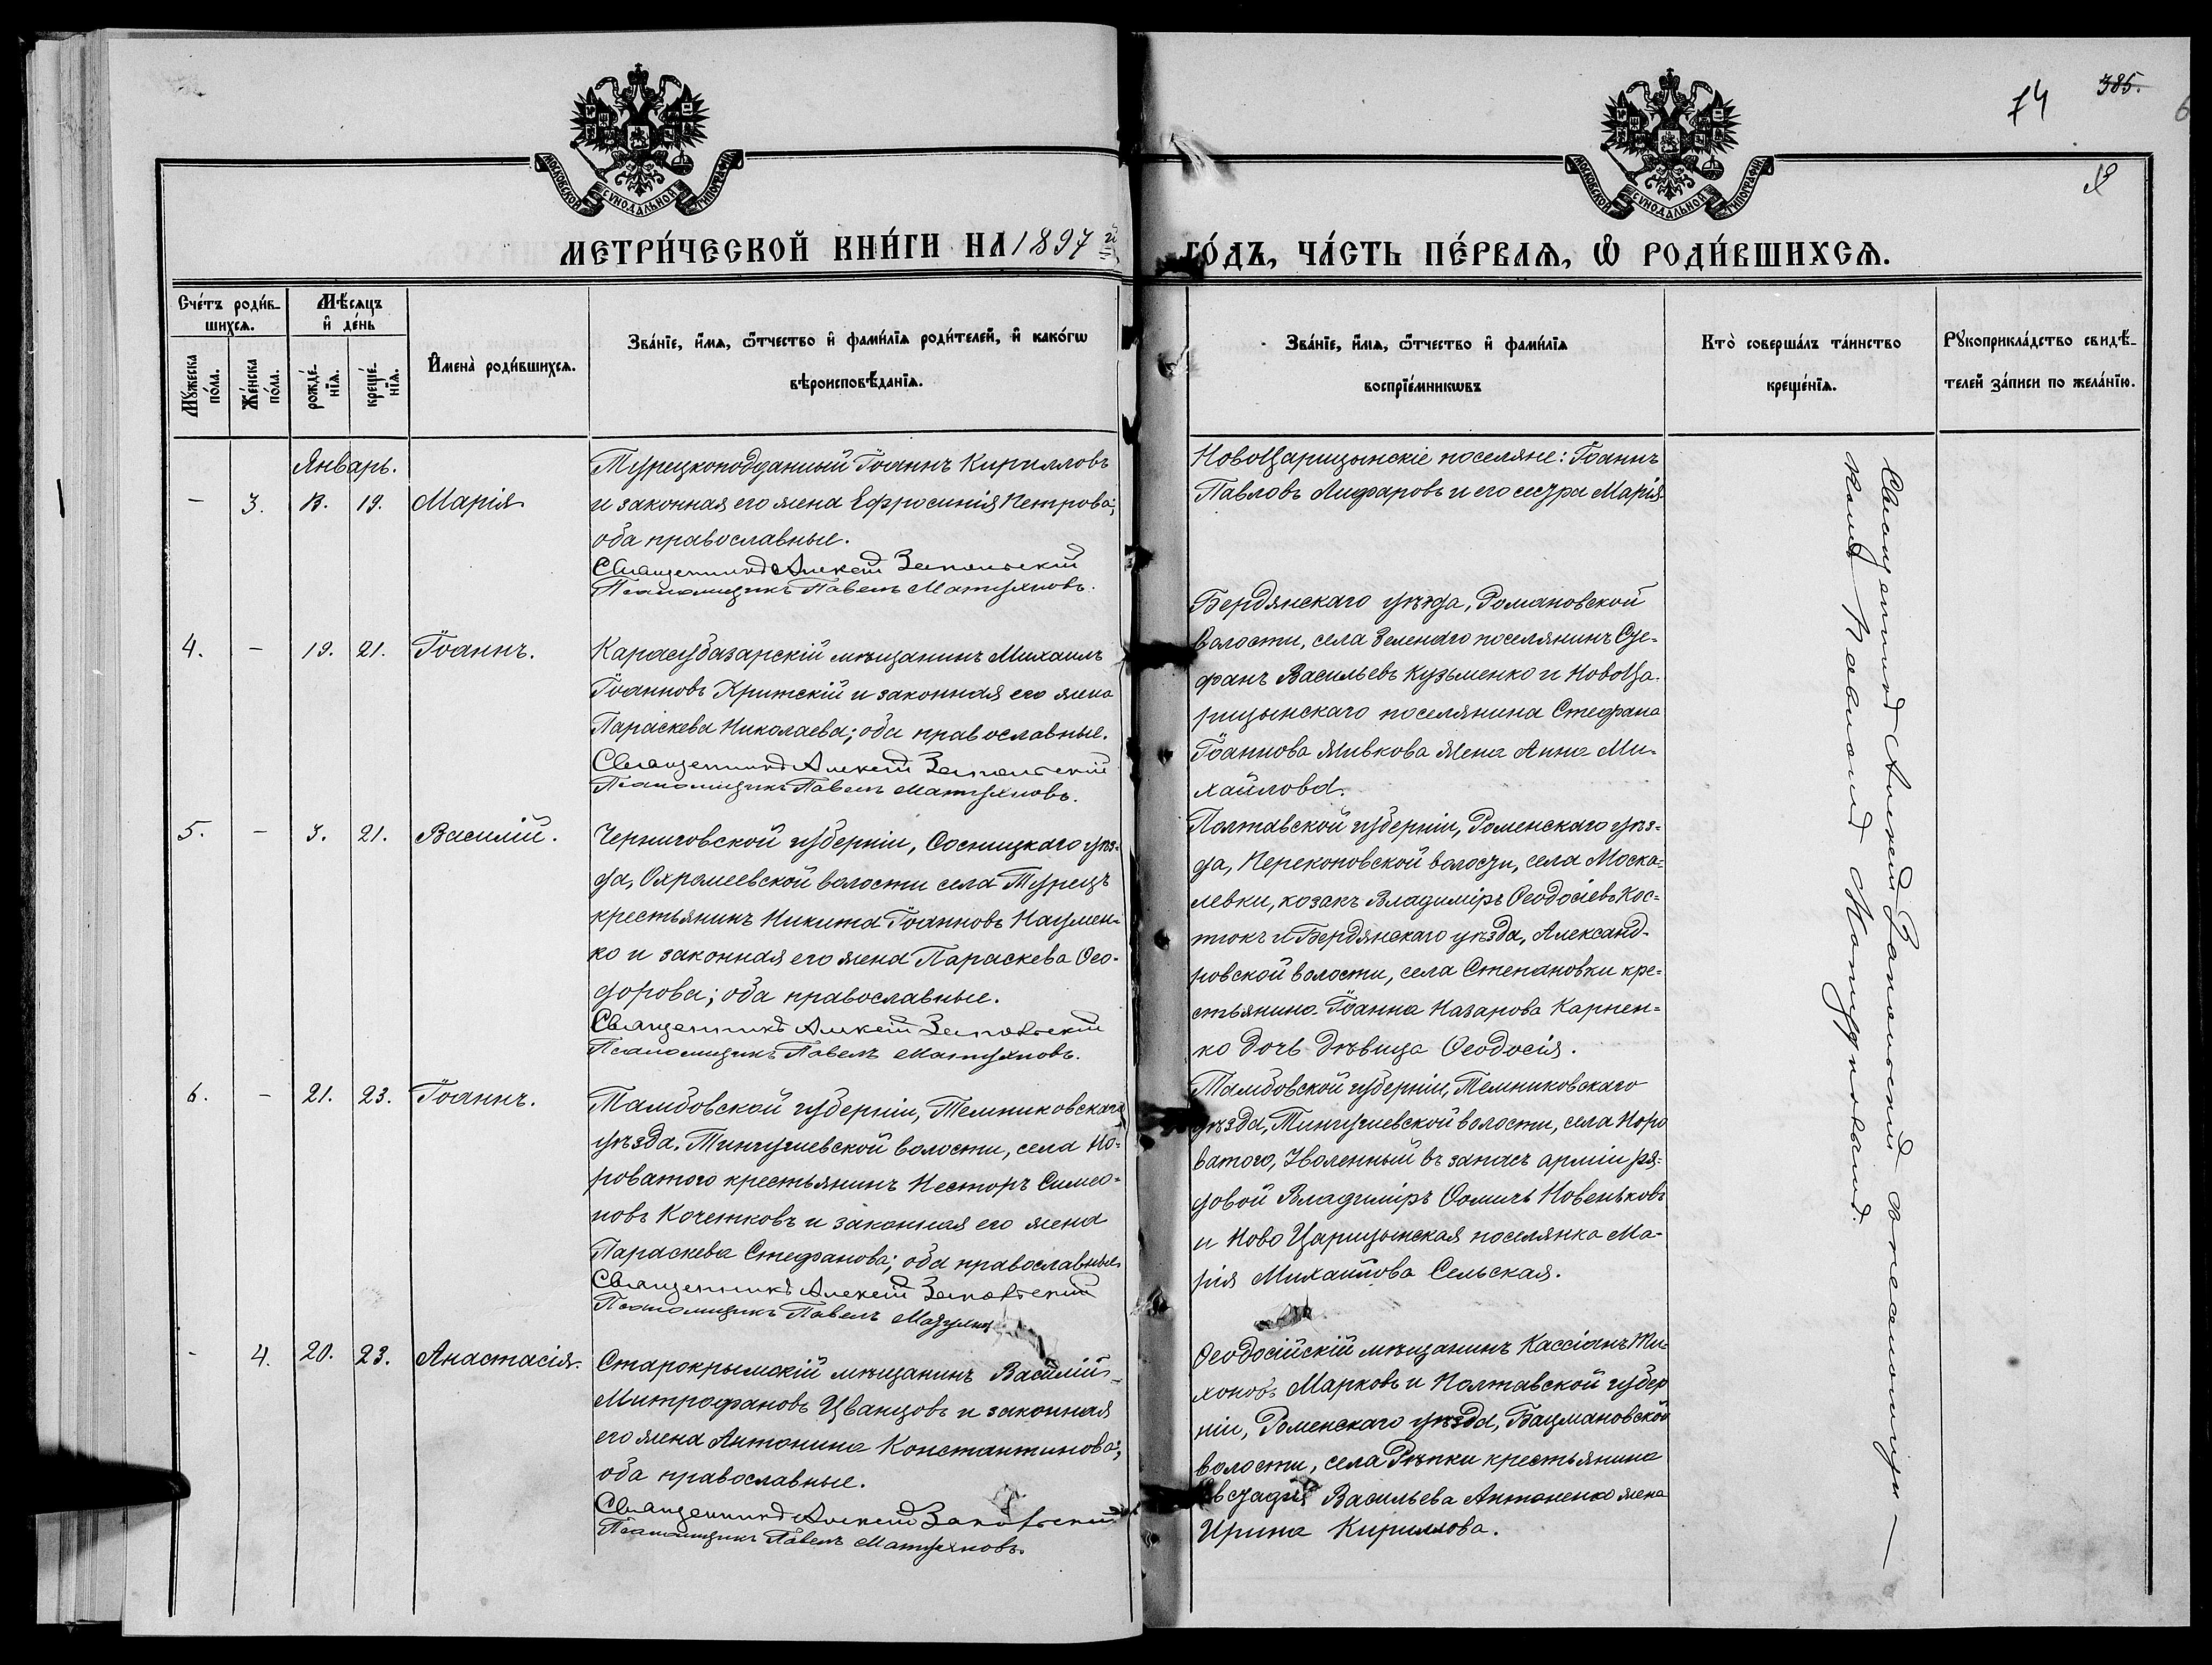 74 385.
МОСКОВСКОЙ СѴНОДАЛЬНОЙ ТИПОГРАФІИ
МОСКОВСКОЙ СѴНОДАЛЬНОЙ ТИПОГРАФІИ
МЕТРИ́ЧЕСКОЙ КНИ́ГИ НА 1897 й
ГО́ДЪ, ЧА́СТЬ ПЕ́РВАѦ, Ѽ РОДИ́ВШИХСѦ.
Сче́тъ роди́в-
шихсѧ.
Мѣ́сѧцъ
и҆ де́нь
Мꙋ́жеска по́ла.
Же́нска по́ла.
рожде́-нїѧ.
креще́-нїѧ.
И҆мена̀ роди́вшихсѧ.
Зва́нїе, и҆́мѧ, ѻ҆́тчество и҆ фами́лїѧ роди́телей, и҆ како́гѡ
вѣроисповѣ́данїѧ.
Зва́нїе, и҆́мѧ, ѻ҆́тчество и҆ фами́лїѧ
воспрїе́мникѡвъ
Кто̀ соверша́лъ та́инство
креще́нїѧ.
Рꙋкоприкла́дство свидѣ́-
телей за́писи по жела́нїю.
Январь.
- 3. 13. 19. Марія
Турецкоподданный Іоаннъ Кирилловъ
и законная его жена Ефросинія Петрова;
оба православные.
Священникъ Алексій Запольскій
Псаломщикъ Павелъ Матухновъ.
НовоЦарицынскіе поселяне: Іоаннъ
Павловъ Лифаровъ и его сестра Марія
4. - 19. 21. Іоаннъ.
Карасубазарскій мѣщанинъ Михаилъ
Іоанновъ Критскій и законная его жена
Параскева Николаева; оба православные.
Священникъ Алексій Запольскій
Псаломщикъ Павелъ Матухновъ.
Бердянскаго уѣзда, Романовской
волости, села Зеленаго поселянинъ Сте-
фанъ Васильевъ Кузьменко и НовоЦа-
рицынскаго поселянина Стефана
Іоаннова Живкова жена Анна Ми-
хайлова.
5. - 3. 21. Василій.
Черниговской губерніи, Сосницкаго уѣз-
да, Охрамеевской волости села Турецъ
крестьянинъ Никита Іоанновъ Наумен-
ко и законная его жена Параскева Ѳео-
дорова; оба православные.
Священникъ Алексій Запольскій
Псаломщикъ Павелъ Матухновъ.
Полтавской губерніи, Роменскаго уѣз-
да, Перекоповской волости, села Моска-
левки, козакъ Владиміръ Ѳеодосіевъ Кос-
тюкъ и Бердянскаго уѣзда, Александ-
ровской волости, села Степановки кре-
стьянина Іоанна Назарова Карпен-
ко дочь дѣвица Ѳеодосія.
6. - 21. 23. Іоаннъ.
Тамбовской губерніи, Темниковскаго
уѣзда, волости, села Но-
роватого крестьянинъ Несторъ Симео-
новъ Коченковъ и законная его жена
Параскева Стефанова; оба православные
Священникъ Алексій Запольскій
Псаломщикъ Павелъ
Тамбовской губерніи, Темниковскаго
уѣзда, волости, села Норо
ватого, Уволенный въ запасъ арміи ря-
довой Владиміръ Ѳомичъ Новеньковъ
и Ново Царицынская поселянка Ма-
рія Михайлова Сельская.
- 4. 20. 23. Анастасія.
Старокрымскій мѣщанинъ Василій
Митрофановъ Цванцовъ и законная
его жена Антонина Константинова;
оба православные.
Священникъ Алексій Запольскій
Псаломщикъ Павелъ Матухновъ.
Ѳеодосійскій мѣщанинъ Кассіанъ Ти-
хоновъ Марковъ и Полтавской губер
ніи, Роменскаго уѣзда, Бацмановской
волости, села Рѣпки крестьянина
Евстафія Васильева Антоненко жена
Ирина Кириллова.
Священникъ Алексій Запольскій съ псаломщи-
комъ Павломъ Матухновымъ.